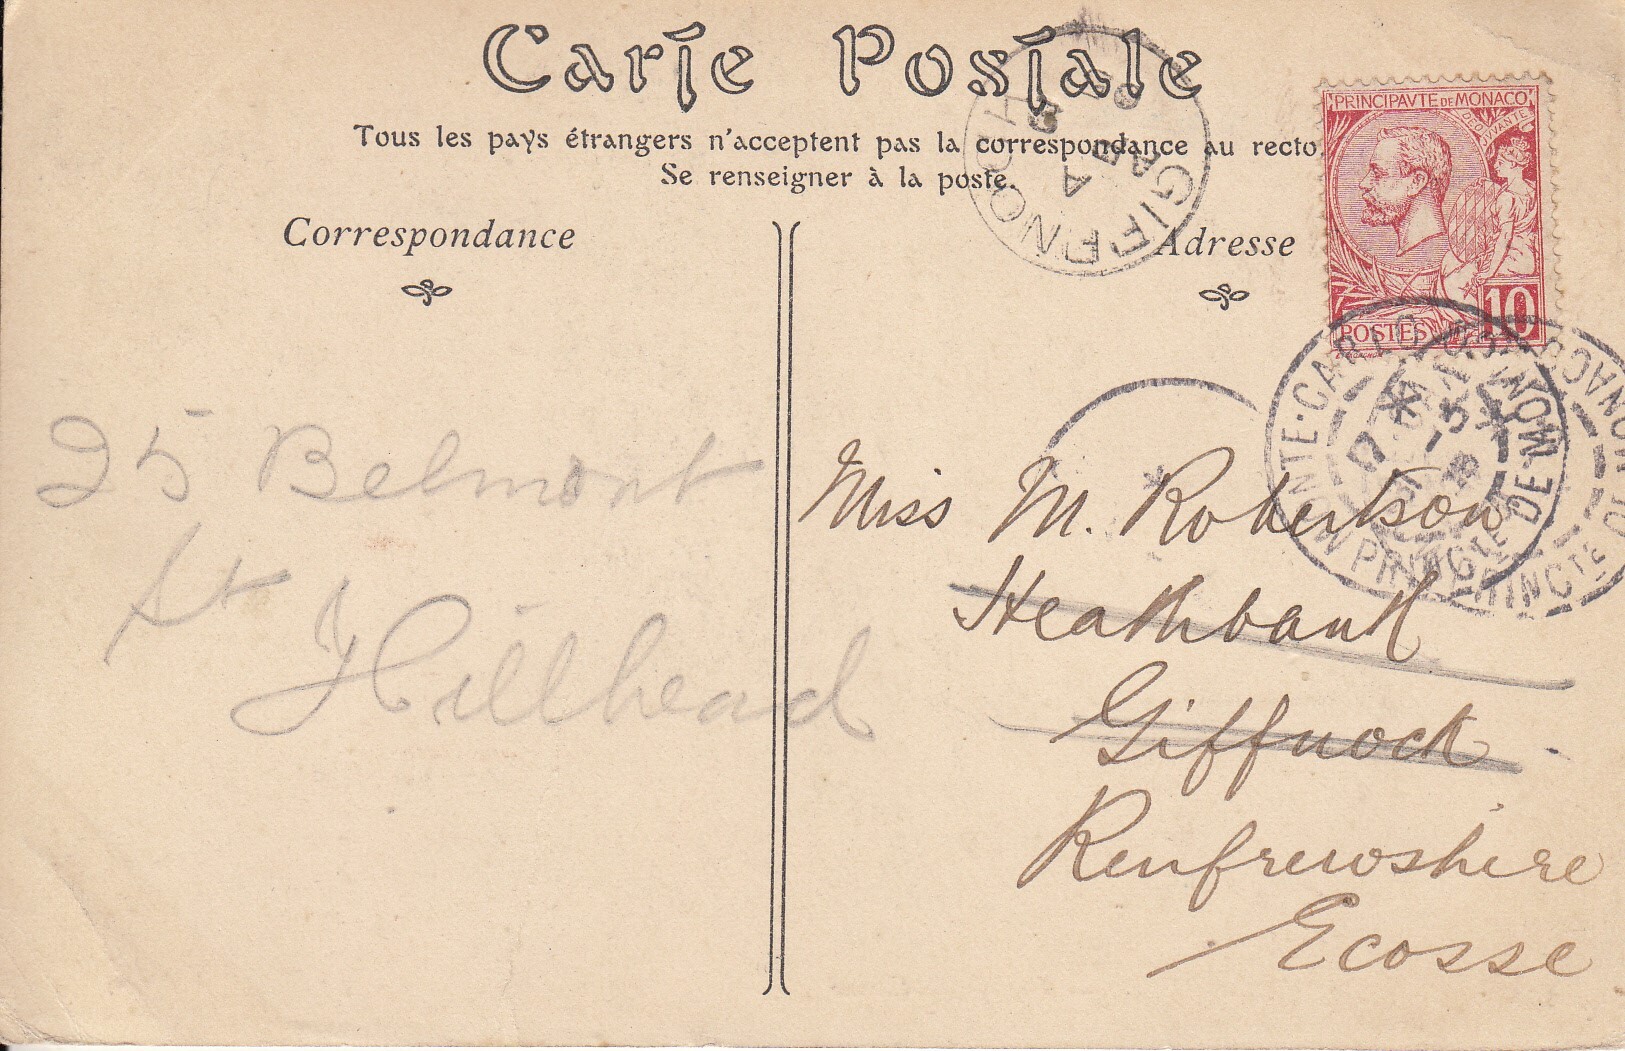 Carte Postale
Tous les pays étrangers n'acceptent pas la correspondance au recto.
Se renseigner à la poste.
Correspondance
Adresse
PRINCIPAVTE DE MONACO
POSTES
10
GIFFNOCK
MONTE-CARLO
PRINCTÉ DE MONACO
25 Belmont
St
Hillhead
Miss M. Robertson
Heathbank
Giffnock
Renfrewshire
Ecosse